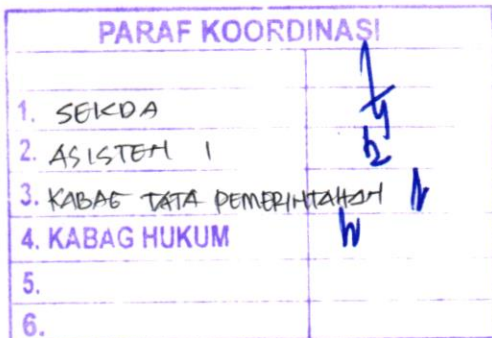 PARAF KOORDINASI
1. SEKDA
2. ASISTEN 1
3. KABAG TATA PEMERINTAHAN
4. KABAG HUKUM
5.
6.